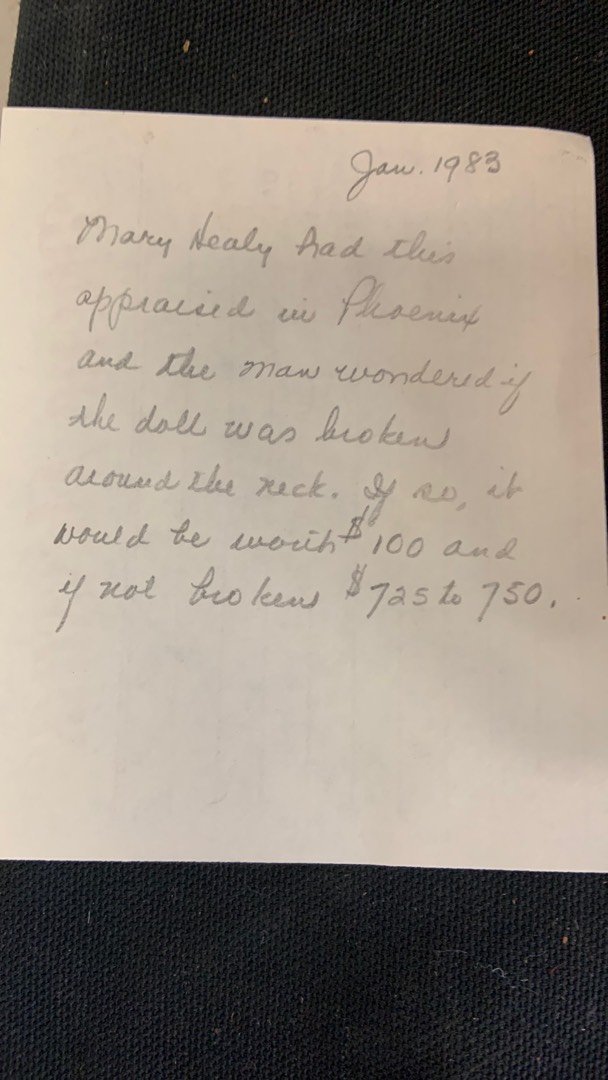 Jan. 1983
Mary Healy had this
appraised in Phoenix
and the man wondered if
the doll was broken
around the neck. If so, it
would be worth $100 and
if not broken $725 to 750.